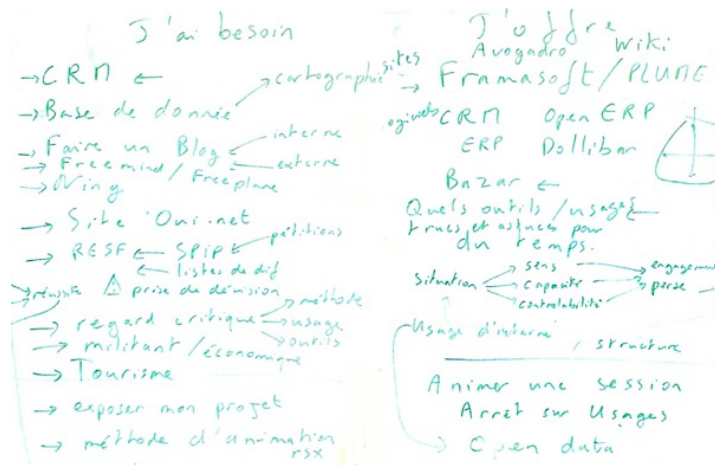 J'ai besoin
→ CRM ←
→ Base de donnée → cartographie
→ Faire un Blog ← interne
→ Freemind / Freeplane ← externe
→ Ning
→ Site Oui.net
→ RESF ← SPIP ← pétitions
← listes de dif
→ réussite ⚠ prise de décision
→ regard critique → méthode
→ usage
→ outils
→ militant / économique
→ Tourisme
→ exposer mon projet
→ méthode d'animation
rsx
J'offre
Avogadro Wiki
sites → Framasoft / PLUME
logiciels CRM Open ERP
ERP Dollibar
Bazar ←
Quels outils / usages ←
trucs et astuces pour
du temps.
situation → sens → engagement
→ capacité → perse
→ controlabilité
Usage d'interne
, structure
Animer une session
Arrêt sur Usages
→ Open data